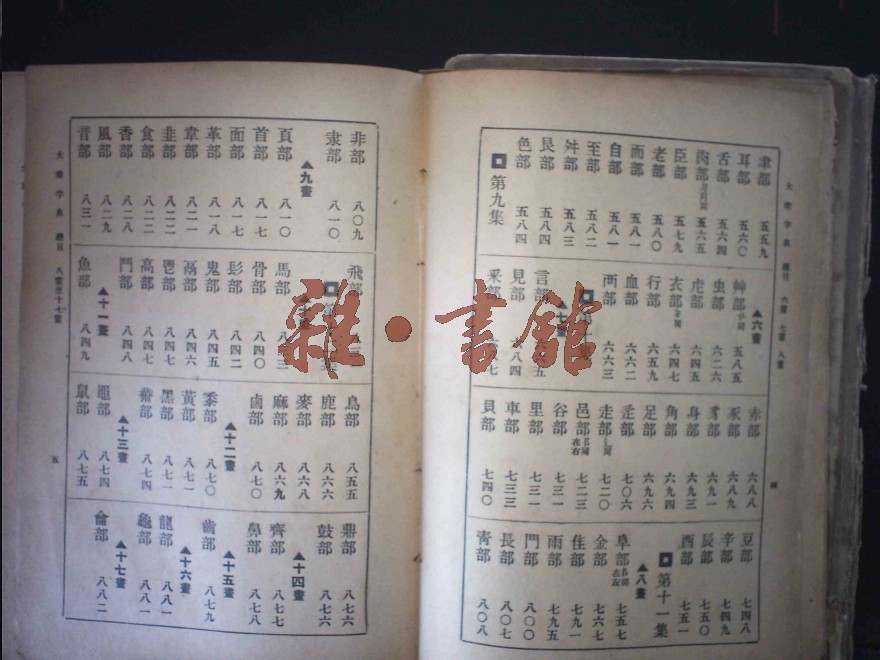 大衆字典 總目 六畫 七畫 八畫
四
聿部 五五九
耳部 五六〇
舌部 五六四
肉部 五六五
臣部 五七九
老部 五八〇
而部 五八一
自部 五八一
至部 五八二
舛部 五八三
艮部 五八四
色部 五八四
第九集
▲六畫
艸部 五八五
虫部 六二六
虍部 六四五
衣部 六四七
行部 六五九
血部 六六二
襾部 六六三
第
▲七
言部 五
見部 八四
釆部 七
赤部 六八八
豕部 六八九
豸部 六九一
身部 六九三
角部 六九四
足部 六九六
辵部 七〇六
走部 七二〇
邑部 右同 在右 七二三
谷部 七三一
里部 七三一
車部 七三三
貝部 七四〇
豆部 七四八
辛部 七四九
辰部 七五〇
酉部 七五一
第十一集
▲八畫
阜部 在左 七五七
金部 七六一
隹部 七九一
雨部 七九五
門部 八〇〇
長部 八〇七
青部 八〇八
非部 八〇九
隶部 八一〇
▲九畫
頁部 八一〇
首部 八一七
面部 八一七
革部 八一八
韋部 八二一
韭部 八二二
食部 八二二
香部 八二八
風部 八二九
音部 八三一
飛部
第
▲十
馬部 八三
骨部 八四〇
髟部 八四二
鬼部 八四五
鬲部 八四六
鬯部 八四七
高部 八四七
鬥部 八四八
▲十一畫
魚部 八四九
鳥部 八五五
鹿部 八六六
麥部 八六八
麻部 八六九
鹵部 八七〇
▲十二畫
黍部 八七〇
黃部 八七一
黑部 八七一
黹部 八七四
▲十三畫
黽部 八七四
鼠部 八七五
鼎部 八七六
鼓部 八七六
▲十四畫
齊部 八七七
鼻部 八七八
▲十五畫
齒部 八七九
▲十六畫
龍部 八八一
龜部 八八一
▲十七畫
龠部 八八二
大衆字典 總目 八畫至十七畫
五
雜·書館